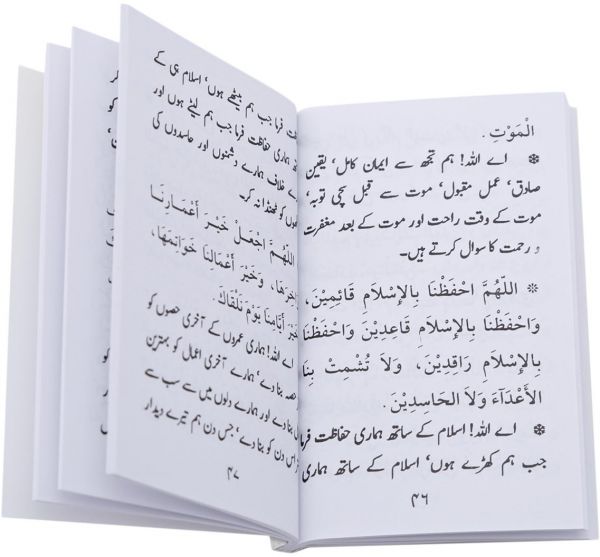 الْمَوْتِ.
❊ اے اللہ! ہم تجھ سے ایمان کامل‘ یقین
صادق‘ عمل مقبول‘ موت سے قبل سچی توبہ‘
موت کے وقت راحت اور موت کے بعد مغفرت
و رحمت کا سوال کرتے ہیں۔
❊ اللّٰهُمَّ احْفَظْنَا بِالإِسْلَامِ قَائِمِيْنَ،
وَاحْفَظْنَا بِالإِسْلَامِ قَاعِدِيْنَ وَاحْفَظْنَا
بِالإِسْلَامِ رَاقِدِيْنَ، وَلَا تُشْمِتْ بِنَا
الأَعْدَآءَ وَلَا الحَاسِدِيْنَ.
❊ اے اللہ! اسلام کے ساتھ ہماری حفاظت فرما
جب ہم کھڑے ہوں‘ اسلام کے ساتھ ہماری
۴۶
فرما جب ہم بیٹھے ہوں‘ اسلام ہی کے
ہماری حفاظت فرما جب ہم لیٹے ہوں اور
خلاف ہمارے دشمنوں اور حاسدوں کی
کو ٹھنڈا نہ کر۔
اللّٰهُمَّ اجْعَلْ خَيْرَ أَعْمَارِنَا
وَخَيْرَ أَعْمَالِنَا خَوَاتِمَهَا،
خَيْرَ أَيَّامِنَا يَوْمَ نَلْقَاكَ.
اے اللہ! ہماری عمروں کے آخری حصوں کو
بنا دے‘ ہمارے آخری اعمال کو بہترین
بنا دے اور ہمارے دنوں میں سے سب سے
اس دن کو بنا دے‘ جس دن ہم تیرے دیدار
۴۷